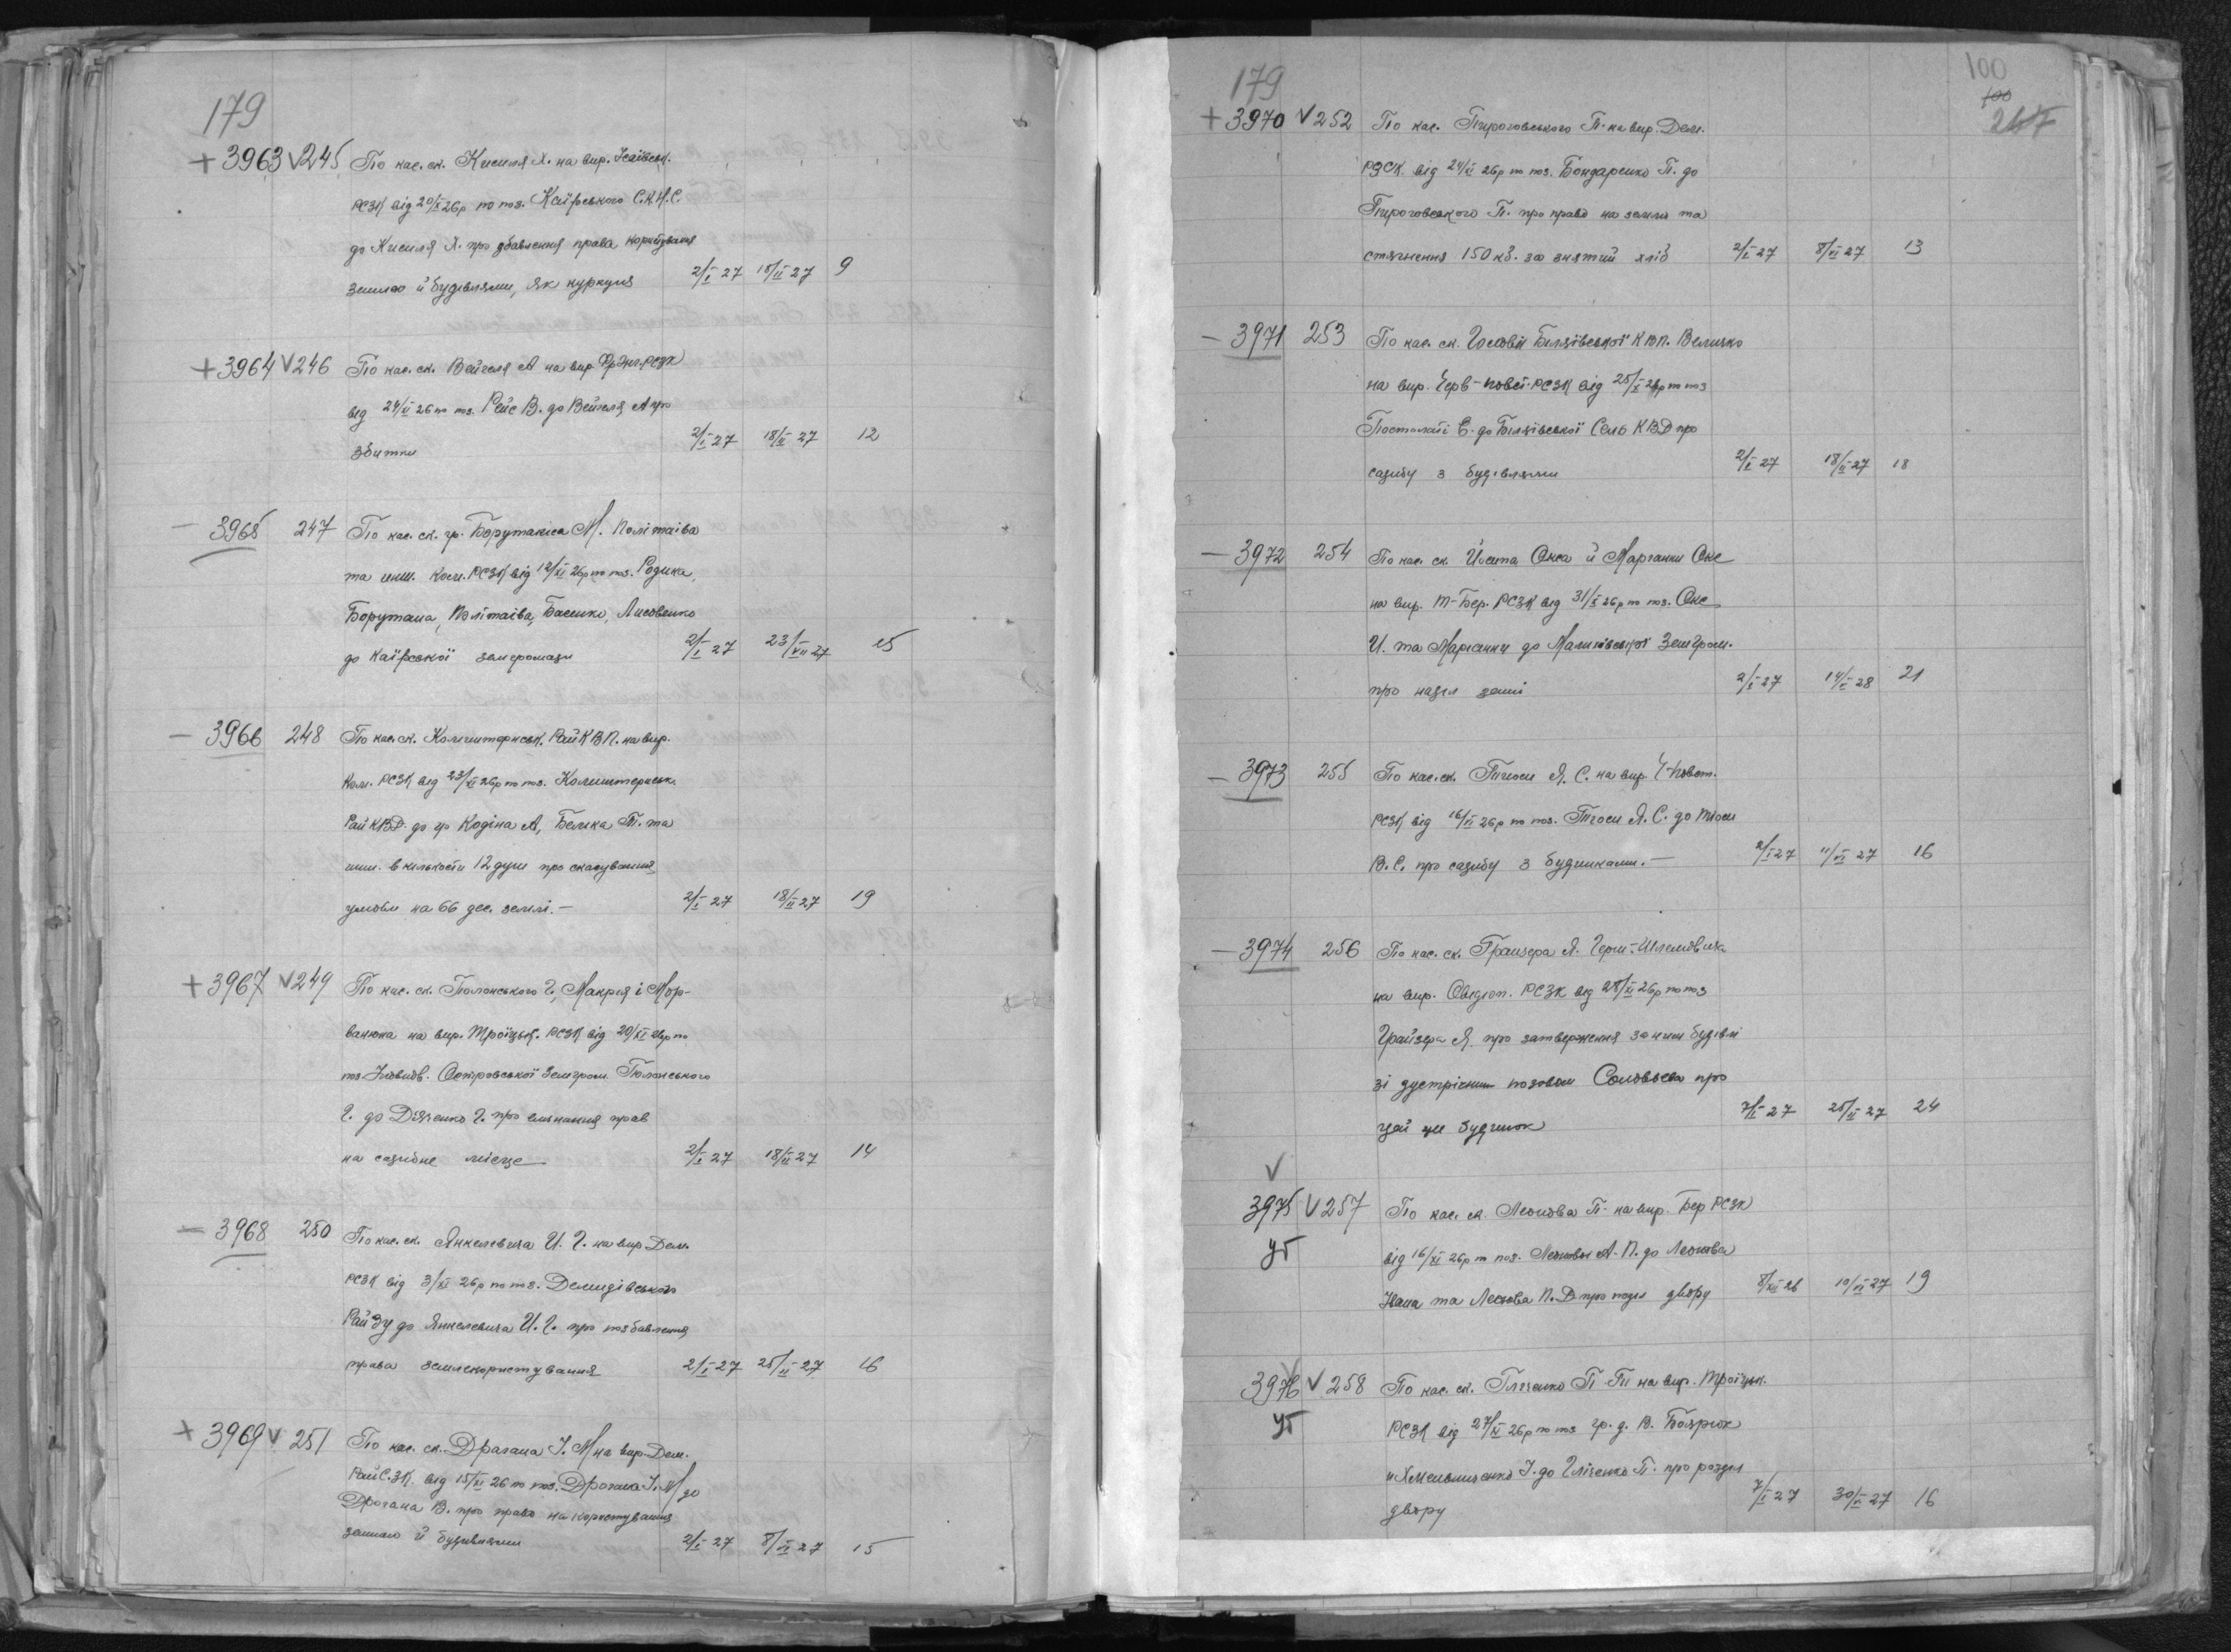 179
+ 3963 V 245 По кас. ск. Киселя Я. на вир. Ісаївськ.
РСЗК від 20/X 26р по поз. Каїрського С.К.Н.С.
до Киселя Я. про збавлення права користування
землею й будівлями, як куркуля 2/I 27 18/II 27 9
+ 3964 V 246 По кас. ск. Вейгеля А на вир. РСЗК
від 24/XI 26 по поз. Рейс В. до Вейгеля А про
збитки 2/I 27 18/II 27 12
— 3965 247 По кас. ск. гр. М. Политаїва
та инш. Ком. РСЗК від 12/XI 26р по поз. Родика,
Борутана, Політаїва, Басенко, Лисовенко
до Каїрської земгромади 2/I 27 23/VII 27 15
— 3966 248 По кас. ск. Комінтернськ. РайКВП. на вир.
Ком. РСЗК від 23/XI 26р по поз. Комінтернськ.
РайКВД до гр Кодіна А, Белика П. та
инш. в кількости 12 душ про скасування
умови на 66 дес. землі. — 2/I 27 18/II 27 19
+ 3967 V 249 По кас. ск. Полонського Г., Макрія і Мор-
ванюка на вир. Троїцьк. РСЗК від 20/XI 26р по
поз. ОстровськоїЗемгром. Полонського
Г. до Дяченко Г. про визнання прав
на садибне місце 2/I 27 18/II 27 14
— 3968 250 По кас. ск. Янкелевича И. Г. на вир Дем.
РСЗК від 3/XI 26р по поз. Демидівського
РайЗУ до Янкелевича И. Г. про позбавлення
права землекористування 2/I 27 25/II 27 16
+ 3969 V 251 По кас. ск. Драгана І. М на вир. Дем.
РайС.ЗК. від 15/XI 26 по поз. Драгана І. М до
Драгана В. про право на користування
землею й будівлями 2/I 27 8/VI 27 15
179
100
100
247
+ 3970 V 252 По кас. Пироговського П. на вир. Дем.
РЗСК від 24/XI 26р по поз. Бондаренко П. до
Пироговського П. про право на землю та
стягнення 150 кб. за знятий хліб 2/I 27 8/VI 27 13
— 3971 253 По кас. ск. Голови Біляївської КВП. Величко
на вир. Черв-Повст. РСЗК від 25/X 26р по поз
Постолатій Є. до Біляївської Сель КВД про
садибу з будівлями 2/I 27 18/II 27 18
— 3972 254 По кас. ск. Йосипа Окса й Марганки Окс
на вир. Т-Бер. РСЗК від 31/X 26р по поз. Окс
И. та Марганки до Малиновської Земгром.
про наділ землі 2/I 27 14/I 28 21
— 3973 255 По кас. ск. Я. С. на вир. Ч-повст.
РСЗК від 16/XI 26р по поз. Я. С. до
В. С. про садибу з будинками. — 2/I 27 11/VI 27 16
— 3974 256 По кас. ск. Грайзера Я.
на вир. Овідіоп. РСЗК від 28/XI 26р по поз
Грайзера Я. про затверження за ним будівлі
зі зустрічним позовом Соловьева про
цей же будинок 7/I 27 25/II 27 24
V
3975 V 257 По кас. ск. Леонова П. на вир. Бер РСЗК
УТ від 16/XI 26р по поз. Леонової А. П. до Леонова
Івана та Леонова П. Д про поділ двору 8/XII 26 10/VI 27 19
V
3976 V 258 По кас. ск. Гліченко П на вир. Троїцьк.
УТ РСЗК від 27/XI 26р по поз гр. д. В. Боярюк
и Хмельниченко І. до Гліченко П. про розділ
двору 7/I 27 30/VI 27 16